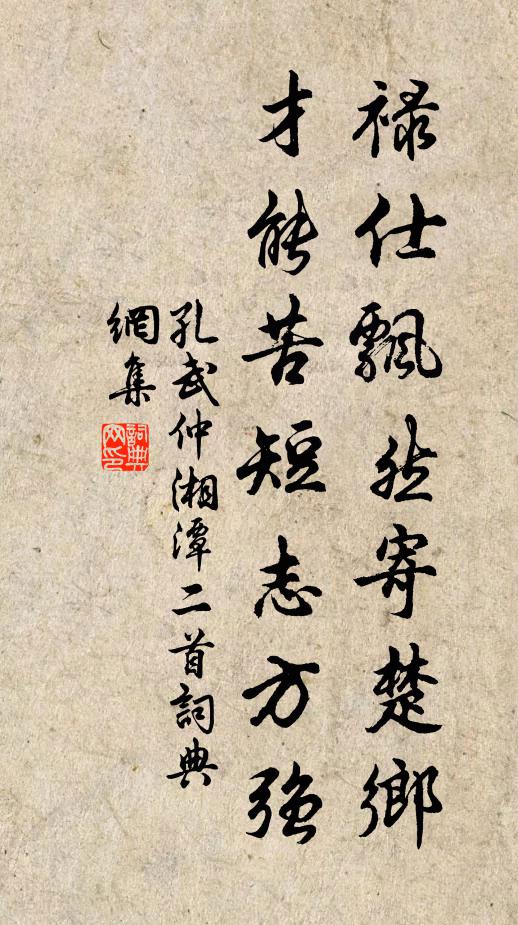 禄仕飄然寄楚鄉
才能苦短志方強
孔武仲湘潭二首詞典
網集
詞典網印